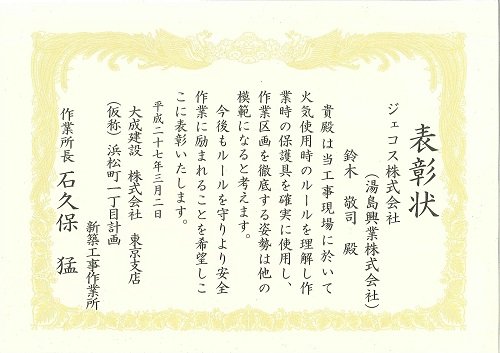 表彰状
ジェコス株式会社
（湯島興業株式会社）
鈴木 敬司 殿
貴殿は当工事現場に於いて
火気使用時のルールを理解し作
業時の保護具を確実に使用し、
作業区画を徹底する姿勢は他の
模範になると考えます。
今後もルールを守りより安全
作業に励まれることを希望しこ
こに表彰いたします。
平成二十七年三月二日
大成建設 株式会社 東京支店
（仮称）浜松町一丁目計画
新築工事作業所
作業所長 石久保 猛